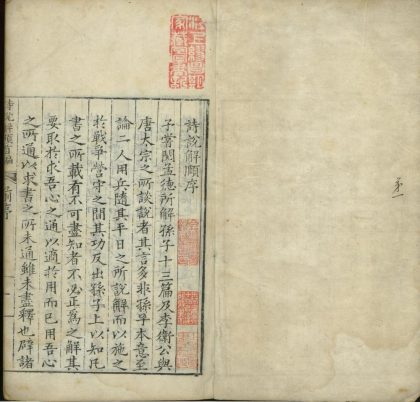 詩說解頤序
予嘗閱孟德所解孫子十三篇及李衛公與
唐太宗之所談說者其言多非孫子本意至
論二人用兵隨其平日之所說解而以施之
於戰爭營守之間其功反出孫子上以知凡
書之所載有不可盡知者不必正為之解其
要取於求吾心之通以適於用而已用吾心
之所通以求書之所未通雖未盡釋也辟諸